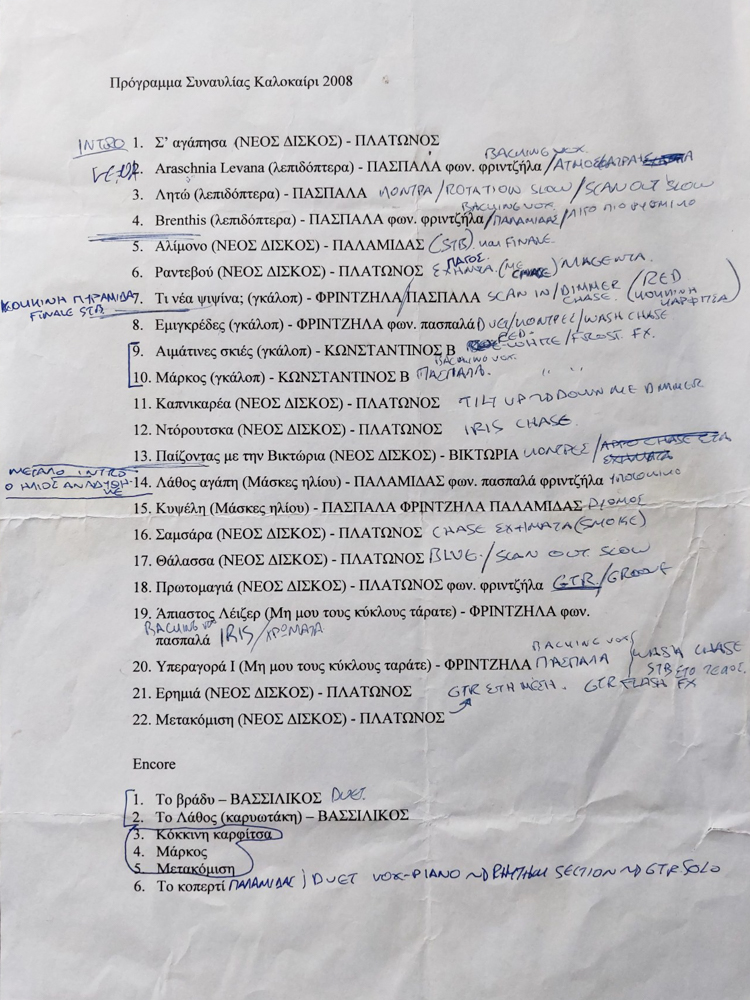 Πρόγραμμα Συναυλίας Καλοκαίρι 2008
INTRO 1. Σ' αγάπησα (ΝΕΟΣ ΔΙΣΚΟΣ) - ΠΛΑΤΩΝΟΣ
BACKING VOX.
2. Araschnia Levana (λεπιδόπτερα) - ΠΑΣΠΑΛΑ φων. φριντζήλα /
3. Λητώ (λεπιδόπτερα) - ΠΑΣΠΑΛΑ ΚΟΝΤΡΑ/ROTATION SLOW/SCAN OUT SLOW
BACKING VOX.
4. Brenthis (λεπιδόπτερα) - ΠΑΣΠΑΛΑ φων. φριντζήλα/ΠΑΛΑΜΙΔΑΣ/ΛΙΓΟ ΠΙΟ ΡΥΘΜΙΚΟ
5. Αλίμονο (ΝΕΟΣ ΔΙΣΚΟΣ) - ΠΑΛΑΜΙΔΑΣ (STB) και FINALE.
6. Ραντεβού (ΝΕΟΣ ΔΙΣΚΟΣ) - ΠΛΑΤΩΝΟΣ ΣΧΗΜΑΤΑ (ΜΕ CHASE) MAGENTA.
ΚΟΚΚΙΝΗ ΠΥΡΑΜΙΔΑ
FINALE STB
7. Τι νέα ψιψίνα; (γκάλοπ) - ΦΡΙΝΤΖΗΛΑ/ΠΑΣΠΑΛΑ SCAN IN/DIMMER CHASE. / RED (ΚΟΚΚΙΝΗ ΚΑΡΦΙΤΣΑ)
8. Εμιγκρέδες (γκάλοπ) - ΦΡΙΝΤΖΗΛΑ φων. πασπαλά DUET/ΚΟΝΤΡΕΣ/WASH CHASE
9. Αιμάτινες σκιές (γκάλοπ) - ΚΩΝΣΤΑΝΤΙΝΟΣ Β RED-WHITE/FROST FX.
BACKING VOX.
10. Μάρκος (γκάλοπ) - ΚΩΝΣΤΑΝΤΙΝΟΣ Β ΠΑΣΠΑΛΑ. " "
11. Καπνικαρέα (ΝΕΟΣ ΔΙΣΚΟΣ) - ΠΛΑΤΩΝΟΣ TILT UP TO DOWN ΜΕ DIMMER
12. Ντόρουτσκα (ΝΕΟΣ ΔΙΣΚΟΣ) - ΠΛΑΤΩΝΟΣ IRIS CHASE.
13. Παίζοντας με την Βικτώρια (ΝΕΟΣ ΔΙΣΚΟΣ) - ΒΙΚΤΩΡΙΑ ΚΟΝΤΡΕΣ/
ΜΕΓΑΛΟ INTRO
Ο ΗΛΙΟΣ
14. Λάθος αγάπη (Μάσκες ηλίου) - ΠΑΛΑΜΙΔΑΣ φων. πασπαλά φριντζήλα
15. Κυψέλη (Μάσκες ηλίου) - ΠΑΣΠΑΛΑ ΦΡΙΝΤΖΗΛΑ ΠΑΛΑΜΙΔΑΣ
16. Σαμσάρα (ΝΕΟΣ ΔΙΣΚΟΣ) - ΠΛΑΤΩΝΟΣ CHASE ΣΧΗΜΑΤΑ (SMOKE)
17. Θάλασσα (ΝΕΟΣ ΔΙΣΚΟΣ) - ΠΛΑΤΩΝΟΣ BLUE./SCAN OUT SLOW
18. Πρωτομαγιά (ΝΕΟΣ ΔΙΣΚΟΣ) - ΠΛΑΤΩΝΟΣ φων. φριντζήλα GTR/GROOVE
19. Άπιαστος Λέιζερ (Μη μου τους κύκλους τάρατε) - ΦΡΙΝΤΖΗΛΑ φων.
BACKING VOX
πασπαλά IRIS/ΧΡΩΜΑΤΑ
BACKING VOX
20. Υπεραγορά Ι (Μη μου τους κύκλους ταράτε) - ΦΡΙΝΤΖΗΛΑ ΠΑΣΠΑΛΑ / WASH CHASE
STB ΣΤΟ ΤΕΛΟΣ.
21. Ερημιά (ΝΕΟΣ ΔΙΣΚΟΣ) - ΠΛΑΤΩΝΟΣ GTR ΣΤΗ ΜΕΣΗ. GTR FLASH FX
22. Μετακόμιση (ΝΕΟΣ ΔΙΣΚΟΣ) - ΠΛΑΤΩΝΟΣ
Encore
1. Το βράδυ – ΒΑΣΣΙΛΙΚΟΣ DUET.
2. Το Λάθος (καρυωτάκη) – ΒΑΣΣΙΛΙΚΟΣ
3. Κόκκινη καρφίτσα
4. Μάρκος
5. Μετακόμιση
6. Το κοπερτί ΠΑΛΑΜΙΔΑΣ / DUET VOX-PIANO RHYTHM SECTION GTR SOLO